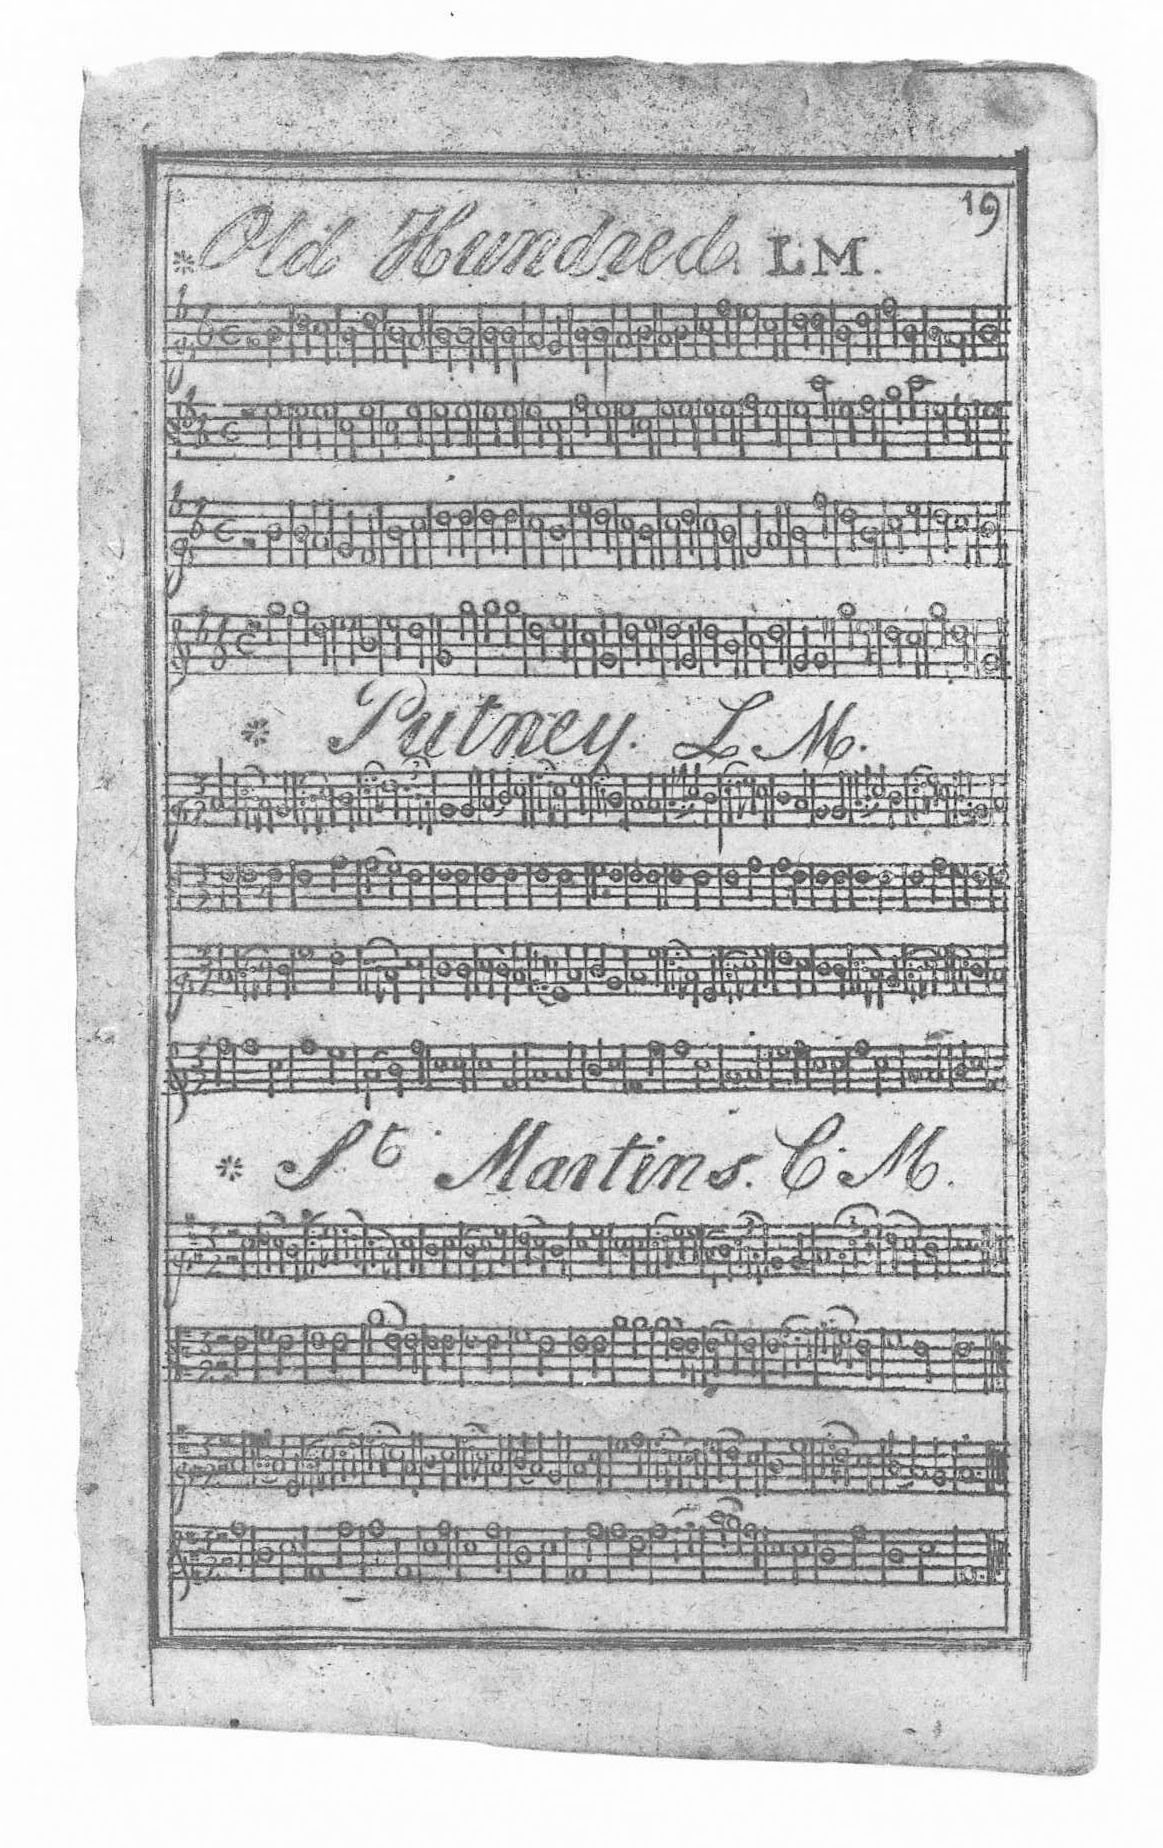 19
* Old Hundred. LM.
* Putney. L M.
* St Martins. C. M.